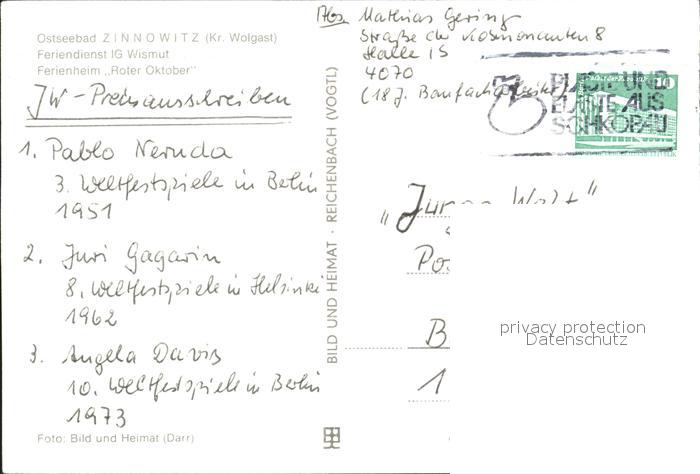 Ostseebad ZINNOWITZ (Kr. Wolgast)
Feriendienst IG Wismut
Ferienheim „Roter Oktober"
JW-Preisausschreiben
1. Pablo Neruda
3. Weltfestspiele in Berlin
1951
2. Juri Gagarin
8. Weltfestspiele in Helsinki
1962
3. Angela Davis
10. Weltfestspiele in Berlin
1973
Foto: Bild und Heimat (Darr)
BILD UND HEIMAT · REICHENBACH (VOGTL)
Abs. Mathias Gering
Straße der Kosmonauten 8
Halle 15
4070
(18 J.
10
PLASTE UND
ELASTE AUS
SCHKOPAU
„Junge Welt"
Po
B
1
privacy protection
Datenschutz